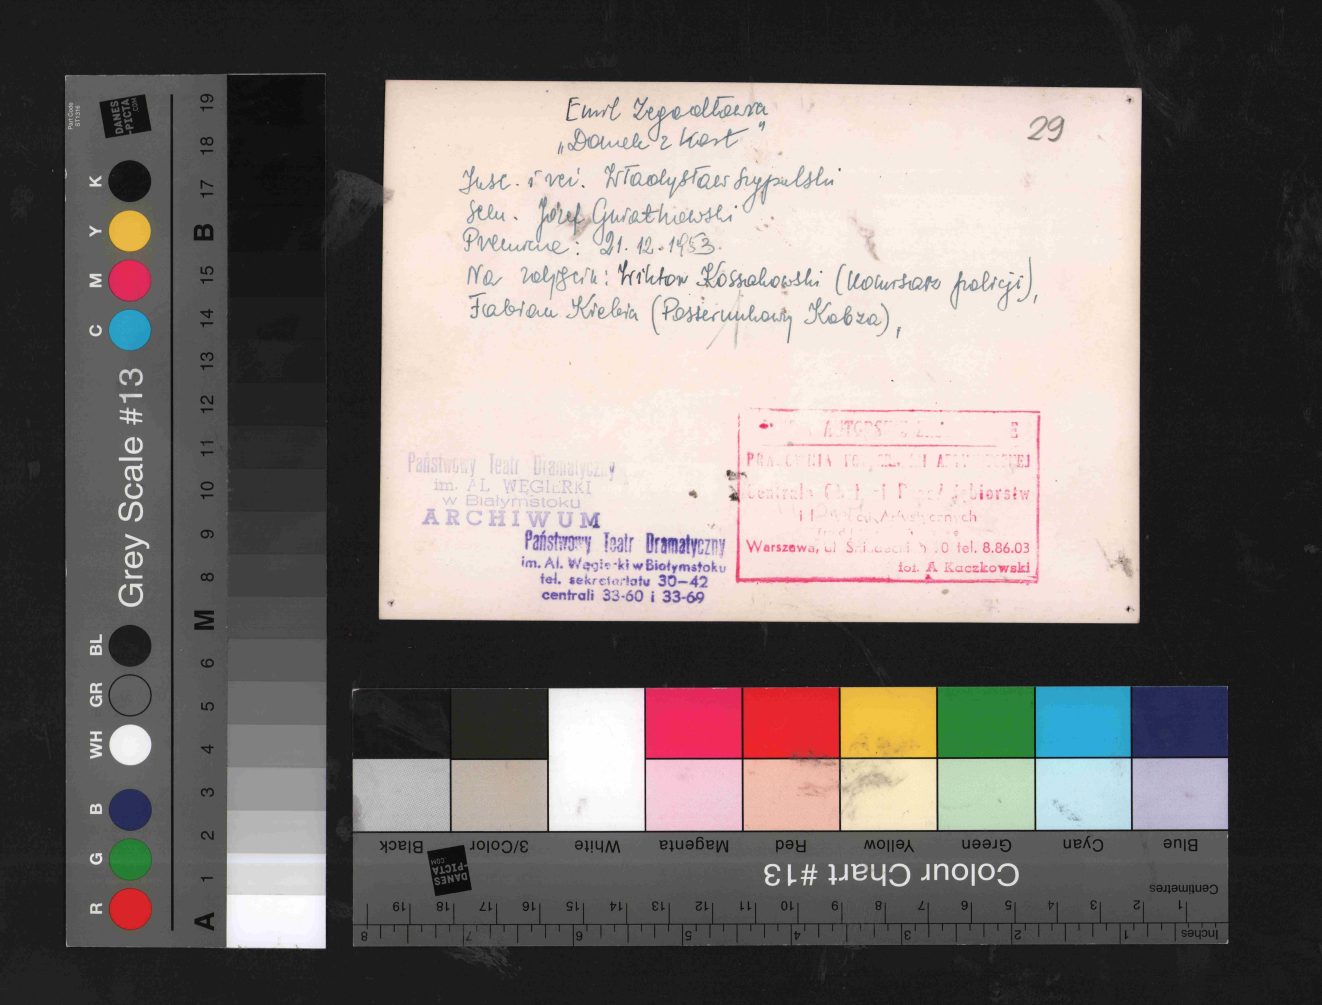 Emil Zegadłowicz
„Domek z kart”
29
Insc. i reż. Władysław Szypulski
Scen. Józef Gwiatkowski
Premiera: 21.12.1953.
Na zdjęciu: Wiktor Kossakowski (Komisarz policji),
Fabian Kiebicz (Posterunkowy Kabza),
Państwowy Teatr Dramatyczny
im. AL. WĘGIERKI
w Białymstoku
ARCHIWUM
Państwowy Teatr Dramatyczny
im. Al. Węgierki w Białymstoku
tel. sekretariatu 30—42
centrali 33-60 i 33-69
Warszawa, ul. tel. 8.86.03
fot. A Kaczkowski
Part Code
ST1316
DANES
-PICTA
.COM
Grey Scale #13
R G B WH GR BL C M Y K
A 1 2 3 4 5 6 M 8 9 10 11 12 13 14 15 B 17 18 19
Black 3/Color White Magenta Red Yellow Green Cyan Blue
DANES
-PICTA
.COM
Colour Chart #13
Centimetres
1 2 3 4 5 6 7 8 9 10 11 12 13 14 15 16 17 18 19
Inches 1 2 3 4 5 6 7 8